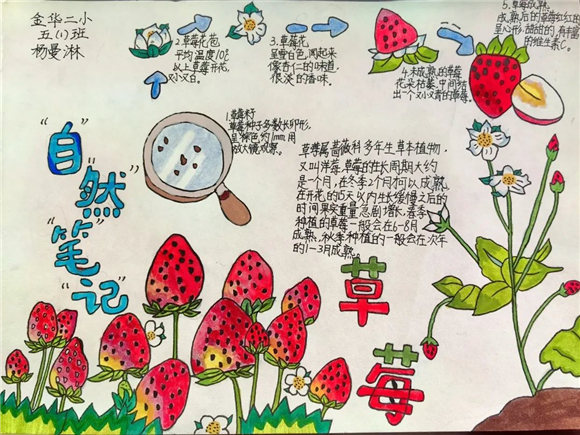 金华二小
五(1)班
杨曼淋
"自"
"然"
"笔"
"记"
1.草莓籽
草莓种子多数长卵形,
呈褐色,约1mm,用
放大镜观察。
2.草莓花苞
平均温度10℃
以上草莓开花,
又小又白。
3.草莓花
呈雪白色,闻起来
像杏仁的味道,
很淡的香味。
4.未成熟的草莓
花朵枯萎,中间结
出个又小又青的草莓。
5.草莓成熟
呈心形,甜甜的,有丰富
的维生素C。
草莓属蔷薇科多年生草本植物,
又叫洋莓,草莓的生长周期大约
是一个月,在冬季2个月才可以成熟。
在开花的15天以内生长缓慢,之后的
时间果实重量急剧增长,春季
种植的草莓一般会在6-8月
成熟,秋季种植的一般会在次年
的1-3月成熟。
草
莓